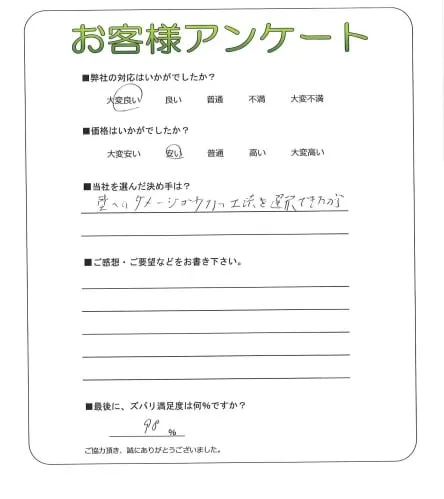 お客様アンケート
■弊社の対応はいかがでしたか？
大変良い 良い 普通 不満 大変不満
■価格はいかがでしたか？
大変安い 安い 普通 高い 大変高い
■当社を選んだ決め手は？
壁へのダメージが少ない工法を選択できた為
■ご感想・ご要望などをお書き下さい。
■最後に、ズバリ満足度は何％ですか？
98 ％
ご協力頂き、誠にありがとうございました。